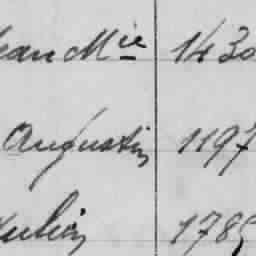 Jean Mie 1430
Augustin 1197
Julien 1785